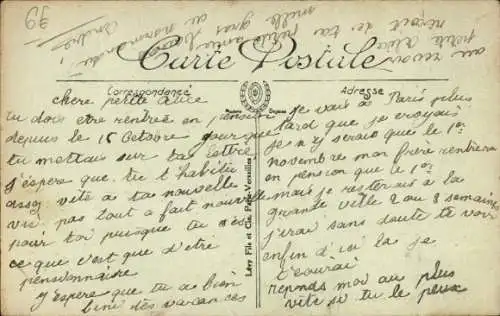 39
au revoir
petite alice
reçoit de ta petite amie
mille gros
de normandie
andrée
Carte Postale
Correspondance
Adresse
chere petite Alice
tu dois etre rentrée en pension
depuis le 15 Octobre pour que
tu mettais sur ta lettre
J'espere que tu t'habitue
assez vite a ta nouvelle
vie pas tout a fait nouvelle
pour toi puisque tu sais
ce que c'est que d'etre
pensionnaire
J'espere que tu a bien
finie tes vacances
Lévy Fils et Cie, Paris-Versailles
je vais a Paris plus
tard que je croyais
je n'y serais que le 1er
novembre mon frère rentrera
en pension que le 1er
mais je resterais a la
grande ville 2 ou 3 semaines
j'irai sans doute te voir
enfin d'ici la je
t'ecourai
reponds moi au plus
vite si tu le peux